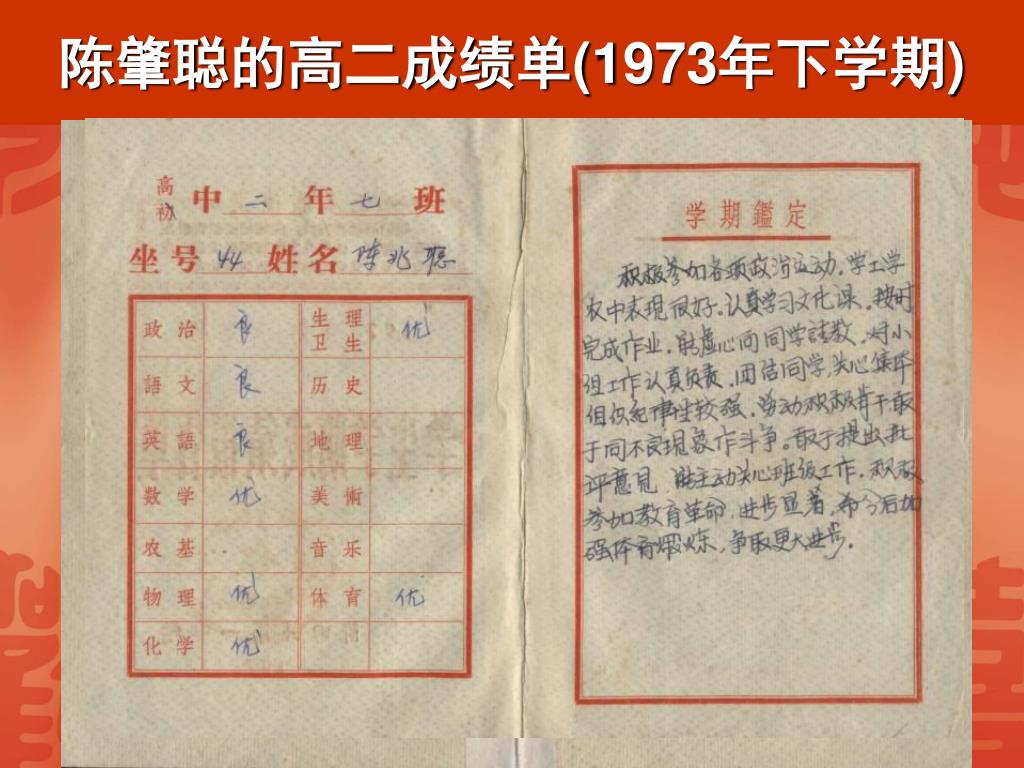 陈肇聪的高二成绩单(1973年下学期)
高
初
中二年七班
坐号44 姓名陈兆聪
政治 良 生理卫生 优
語文 良 历史
英語 良 地理
数学 优 美術
农基 音乐
物理 优 体育 优
化学 优
学期鑑定
积极参加各项政治运动,学工学
农中表现很好。认真学习文化课。按时
完成作业,能虚心向同学请教,对小
组工作认真负责,团结同学,关心集体
组织纪律性较强,劳动积极肯干敢
于同不良现象作斗争。敢于提出批
评意见,能主动关心班级工作,积极
参加教育革命,进步显著,希今后加
强体育煅炼,争取更大进步。